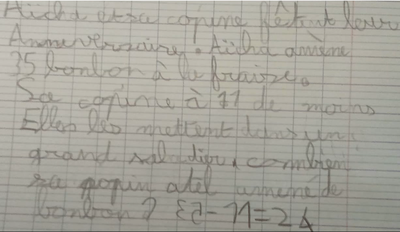 Aïcha et sa copine fêtent leur
Anneverraire. Aïcha amène
35 bonbon à la fraise.
Sa copine à 11 de moins
Elles les mettent dans un
grand saladier, combien
sa popin atel amené de
bonbon ? 35-11=24